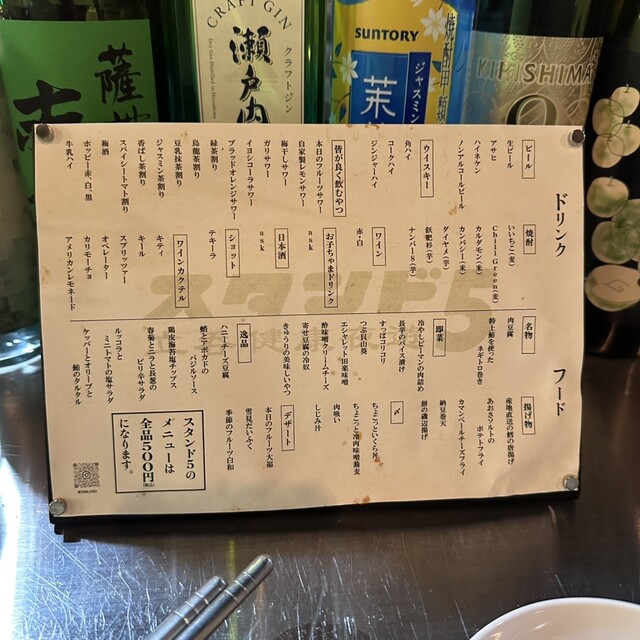 ドリンク
ビール
生ビール
アサヒ
ハイネケン
ノンアルコールビール
ウイスキー
角ハイ
コークハイ
ジンジャーハイ
皆が良く飲むやつ
本日のフルーツサワー
自家製レモンサワー
梅干しサワー
ガリサワー
イヨシコーラサワー
ブラッドオレンジサワー
緑茶割り
烏龍茶割り
豆乳抹茶割り
ジャスミン茶割り
香ばし茶割り
スパイシートマト割り
梅酒
ホッピー赤、白、黒
牛乳ハイ
焼酎
いいちこ(麦)
Chill Green(麦)
カルダモン(米)
カンバシー(米)
ダイヤメ(芋)
飫肥杉(芋)
ナンバー8(芋)
ワイン
赤・白
お子ちゃまドリンク
ask
日本酒
ask
ショット
テキーラ
ワインカクテル
キティ
キール
スプリッツァー
オペレーター
カリモーチョ
アメリカンレモネード
フード
名物
肉豆腐
特上鮪を使った
ネギトロ巻き
即菜
冷やしピーマンの肉詰め
長芋のベイス漬け
すっぱコリコリ
つぶ貝山葵
エシャレット田楽味噌
酢味噌クリームチーズ
寄せ豆腐の冷奴
きゅうりの美味しいやつ
逸品
ハニーチーズ豆腐
蛸とアボカドの
バジルソース
鶏皮海苔塩チップス
春菊とニラと長葱の
ピリ辛サラダ
ルッコラと
ミニトマトの塩サラダ
ケッパーとオリーブと
鮪のタルタル
揚げ物
産地直送の鱈の唐揚げ
あおさソルトの
ポテトフライ
カマンベールチーズフライ
納豆巻天
餅の磯辺揚げ
〆
ちょこっといくら丼
ちょこっと冷肉味噌蕎麦
肉吸い
しじみ汁
デザート
本日のフルーツ大福
雪見だいふく
季節のフルーツ白和
スタンド5の
メニューは
全品500円(税込)
になります。
スタンド5
CRAFT GIN
瀬戸内
クラフトジン
SUNTORY
ジャスミン
茉
焼酎甲類
KIRISHIMA
薩